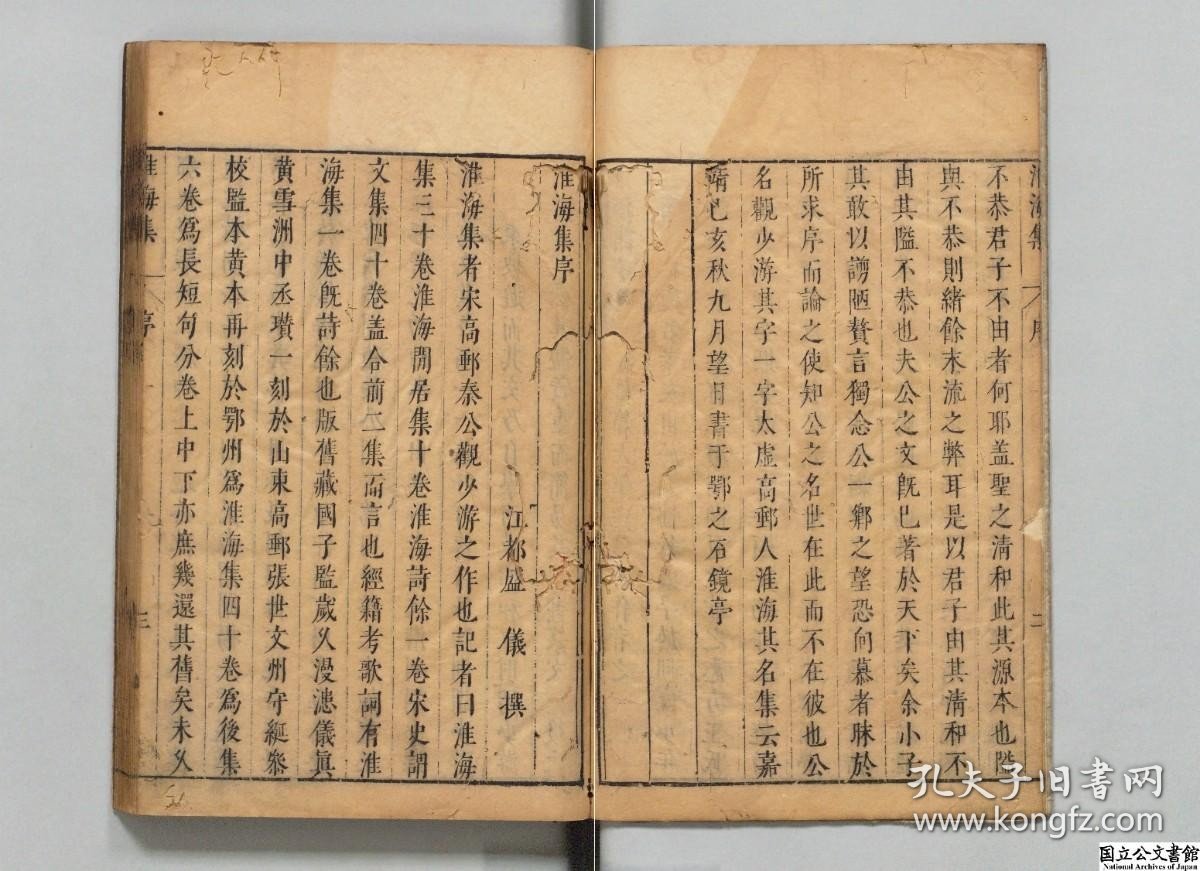 淮海集
序
二
不恭君子不由者何耶盖聖之清和此其源本也隘
與不恭則緒餘末流之弊耳是以君子由其清和不
由其隘不恭也夫公之文旣已著於天下矣余小子
其敢以謭陋贅言獨念公一鄉之望恐向慕者昧於
所求序而論之使知公之名世在此而不在彼也公
名觀少游其字一字太虛高郵人淮海其名集云嘉
靖己亥秋九月望日書于鄂之石鏡亭
淮海集序
江都盛儀撰
淮海集者宋高郵秦公觀少游之作也記者曰淮海
集三十卷淮海閒居集十卷淮海詩餘一卷宋史謂
文集四十卷盖合前二集而言也經籍考歌詞有淮
海集一卷旣詩餘也版舊藏國子監歲久漫漶儀眞
黃雪洲中丞瓚一刻於山東高郵張世文州守綖叅
校監本黃本再刻於鄂州爲淮海集四十卷爲後集
六卷爲長短句分卷上中下亦庶幾還其舊矣未久
淮海集
序
三
孔夫子旧书网
www.kongfz.com
国立公文書館
National Archives of Japan